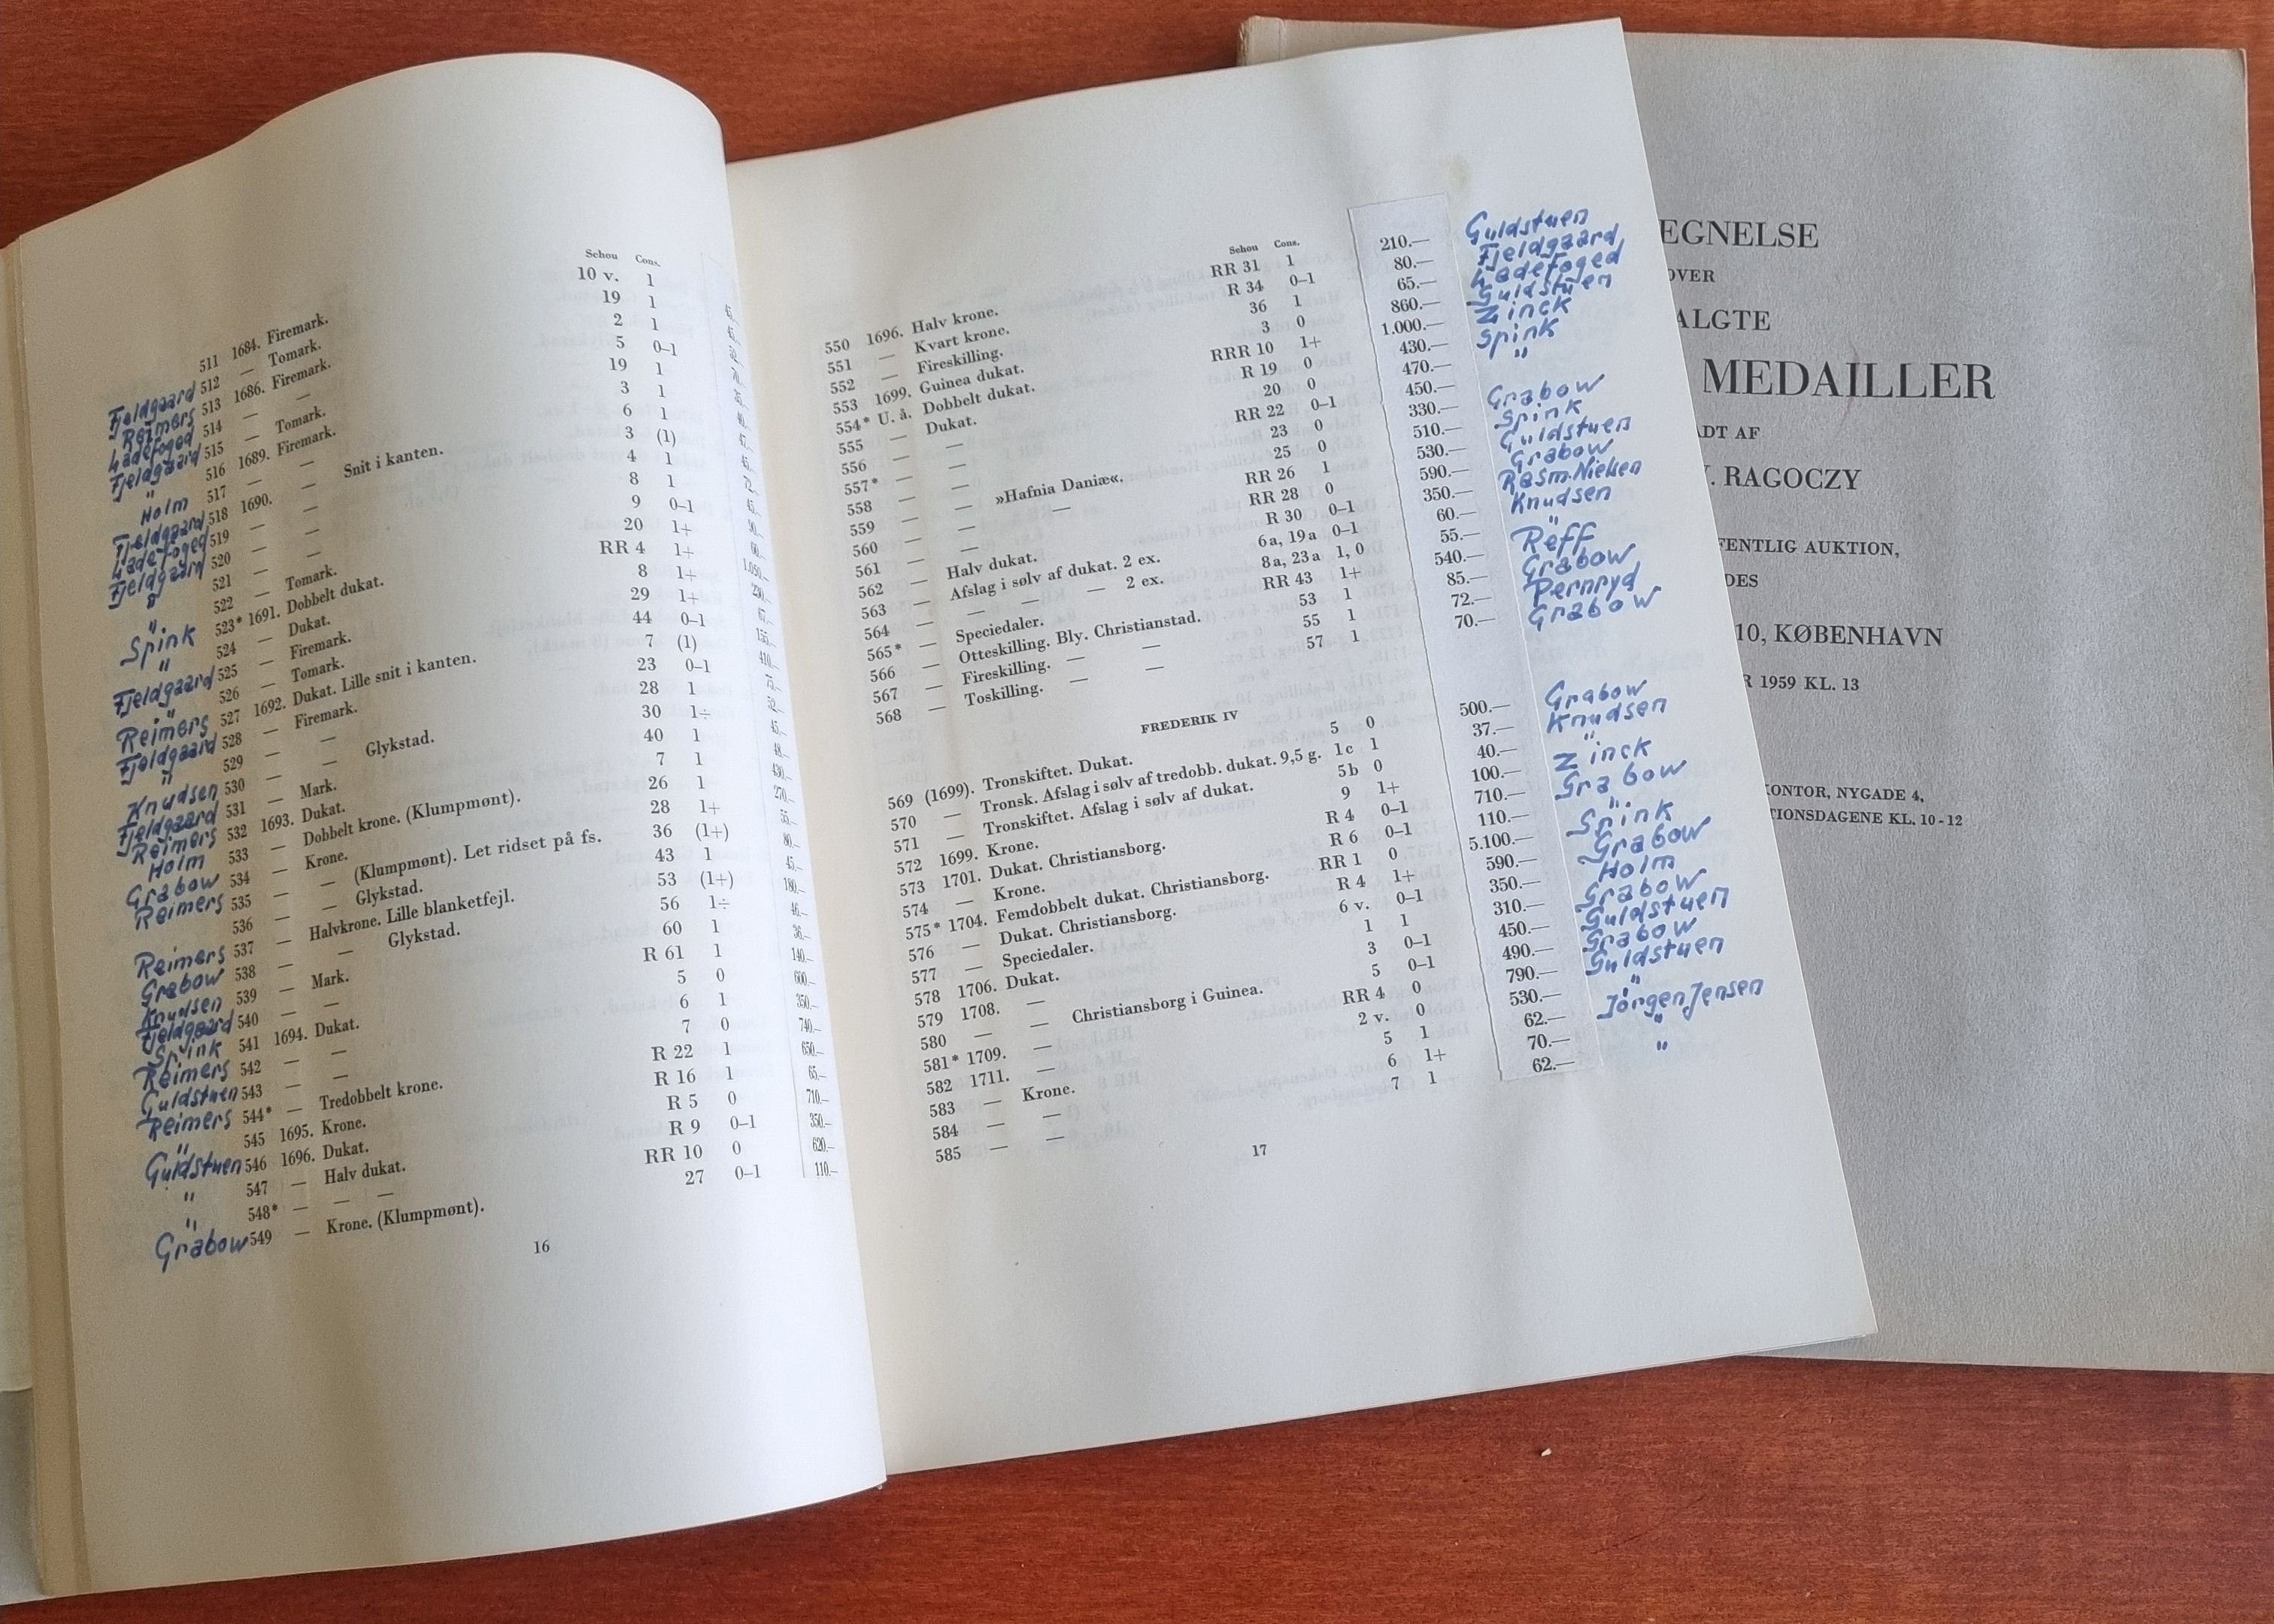 Schou Cons.
511 1684. Firemark. 10 v. 1 45,-
Fjeldgaard 512 — Tomark. 19 1 45,-
Reimers 513 1686. Firemark. 2 1
Ladefoged 514 — — 5 0–1 70,-
Fjeldgaard 515 — Tomark. 19 1
" 516 1689. Firemark. 3 1 40,-
Holm 517 — — 6 1 47,-
Fjeldgaard 518 1690. — Snit i kanten. 3 (1) 45,-
Ladefoged 519 — — 4 1 72,-
Fjeldgaard 520 — — 8 1 45,-
" 521 — — 9 0–1 90,-
" 522 — Tomark. 20 1+ 60,-
Spink 523* 1691. Dobbelt dukat. RR 4 1+ 1.050,-
" 524 — Dukat. 8 1+ 230,-
Fjeldgaard 525 — Firemark. 29 1+ 67,-
" 526 — Tomark. 44 0–1 155,-
Reimers 527 1692. Dukat. Lille snit i kanten. 7 (1) 410,-
Fjeldgaard 528 — Firemark. 23 0–1 75,-
" 529 — — 28 1 52,-
Knudsen 530 — — Glykstad. 30 1÷ 45,-
Fjeldgaard 531 — Mark. 40 1 48,-
Reimers 532 1693. Dukat. 7 1 430,-
Holm 533 — Dobbelt krone. (Klumpmønt). 26 1 270,-
Grabow 534 — Krone. 28 1+ 55,-
Reimers 535 — — (Klumpmønt). Let ridset på fs. 36 (1+) 80,-
" 536 — — Glykstad. 43 1 45,-
Reimers 537 — Halvkrone. Lille blanketfejl. 53 (1+) 180,-
Grabow 538 — — Glykstad. 56 1÷ 46,-
Knudsen 539 — Mark. 60 1 36,-
Fjeldgaard 540 — — R 61 1 140,-
Spink 541 1694. Dukat. 5 0 600,-
Reimers 542 — — 6 1 350,-
Guldstuen 543 — — 7 0 740,-
Reimers 544* — Tredobbelt krone. R 22 1 650,-
" 545 1695. Krone. R 16 1 65,-
Guldstuen 546 1696. Dukat. R 5 0 710,-
" 547 — Halv dukat. R 9 0–1 350,-
" 548* — — RR 10 0 620,-
Grabow 549 — Krone. (Klumpmønt). 27 0–1 110,-
16
Schou Cons.
550 1696. Halv krone. RR 31 1 210.— Guldstuen
551 — Kvart krone. R 34 0–1 80.— Fjeldgaard
552 — Fireskilling. 36 1 65.— Ladefoged
553 1699. Guinea dukat. 3 0 860.— Guldstuen
554* U. å. Dobbelt dukat. RRR 10 1+ 1.000.— Zinck
555 — Dukat. R 19 0 430.— Spink
556 — — 20 0 470.— "
557* — — RR 22 0–1 450.— Grabow
558 — — 23 0 330.— Spink
559 — — »Hafnia Daniæ«. 25 0 510.— Guldstuen
560 — — — RR 26 1 530.— Grabow
561 — — RR 28 0 590.— Rasm.Nielsen
562 — Halv dukat. R 30 0–1 350.— Knudsen
563 — Afslag i sølv af dukat. 2 ex. 6a, 19a 0–1 60.— "
564 — — — — 2 ex. 8a, 23a 1, 0 55.— Reff
565* — Speciedaler. RR 43 1+ 540.— Grabow
566 — Otteskilling. Bly. Christianstad. 53 1 85.— Pernryd
567 — Fireskilling. — — 55 1 72.— Grabow
568 — Toskilling. — — 57 1 70.—
FREDERIK IV
569 (1699). Tronskiftet. Dukat. 5 0 500.— Grabow
570 — Tronsk. Afslag i sølv af tredobb. dukat. 9,5 g. 1c 1 37.— Knudsen
571 — Tronskiftet. Afslag i sølv af dukat. 5b 0 40.— "
572 1699. Krone. 9 1+ 100.— Zinck
573 1701. Dukat. Christiansborg. R 4 0–1 710.— Grabow
574 — Krone. R 6 0–1 110.— "
575* 1704. Femdobbelt dukat. Christiansborg. RR 1 0 5.100.— Spink
576 — Dukat. Christiansborg. R 4 1+ 590.— Grabow
577 — Speciedaler. 6 v. 0–1 350.— Holm
578 1706. Dukat. 1 1 310.— Grabow
579 1708. — 3 0–1 450.— Guldstuen
580 — — Christiansborg i Guinea. 5 0–1 490.— Grabow
581* 1709. — RR 4 0 790.— Guldstuen
582 1711. — 2 v. 0 530.— "
583 — Krone. 5 1 62.— Jörgen Jensen
584 — — 6 1+ 70.— "
585 — — 7 1 62.— "
17
EGNELSE
OVER
ALGTE
MEDAILLER
ADT AF
V. RAGOCZY
FENTLIG AUKTION,
DES
10, KØBENHAVN
R 1959 KL. 13
KONTOR, NYGADE 4,
TIONSDAGENE KL. 10 - 12